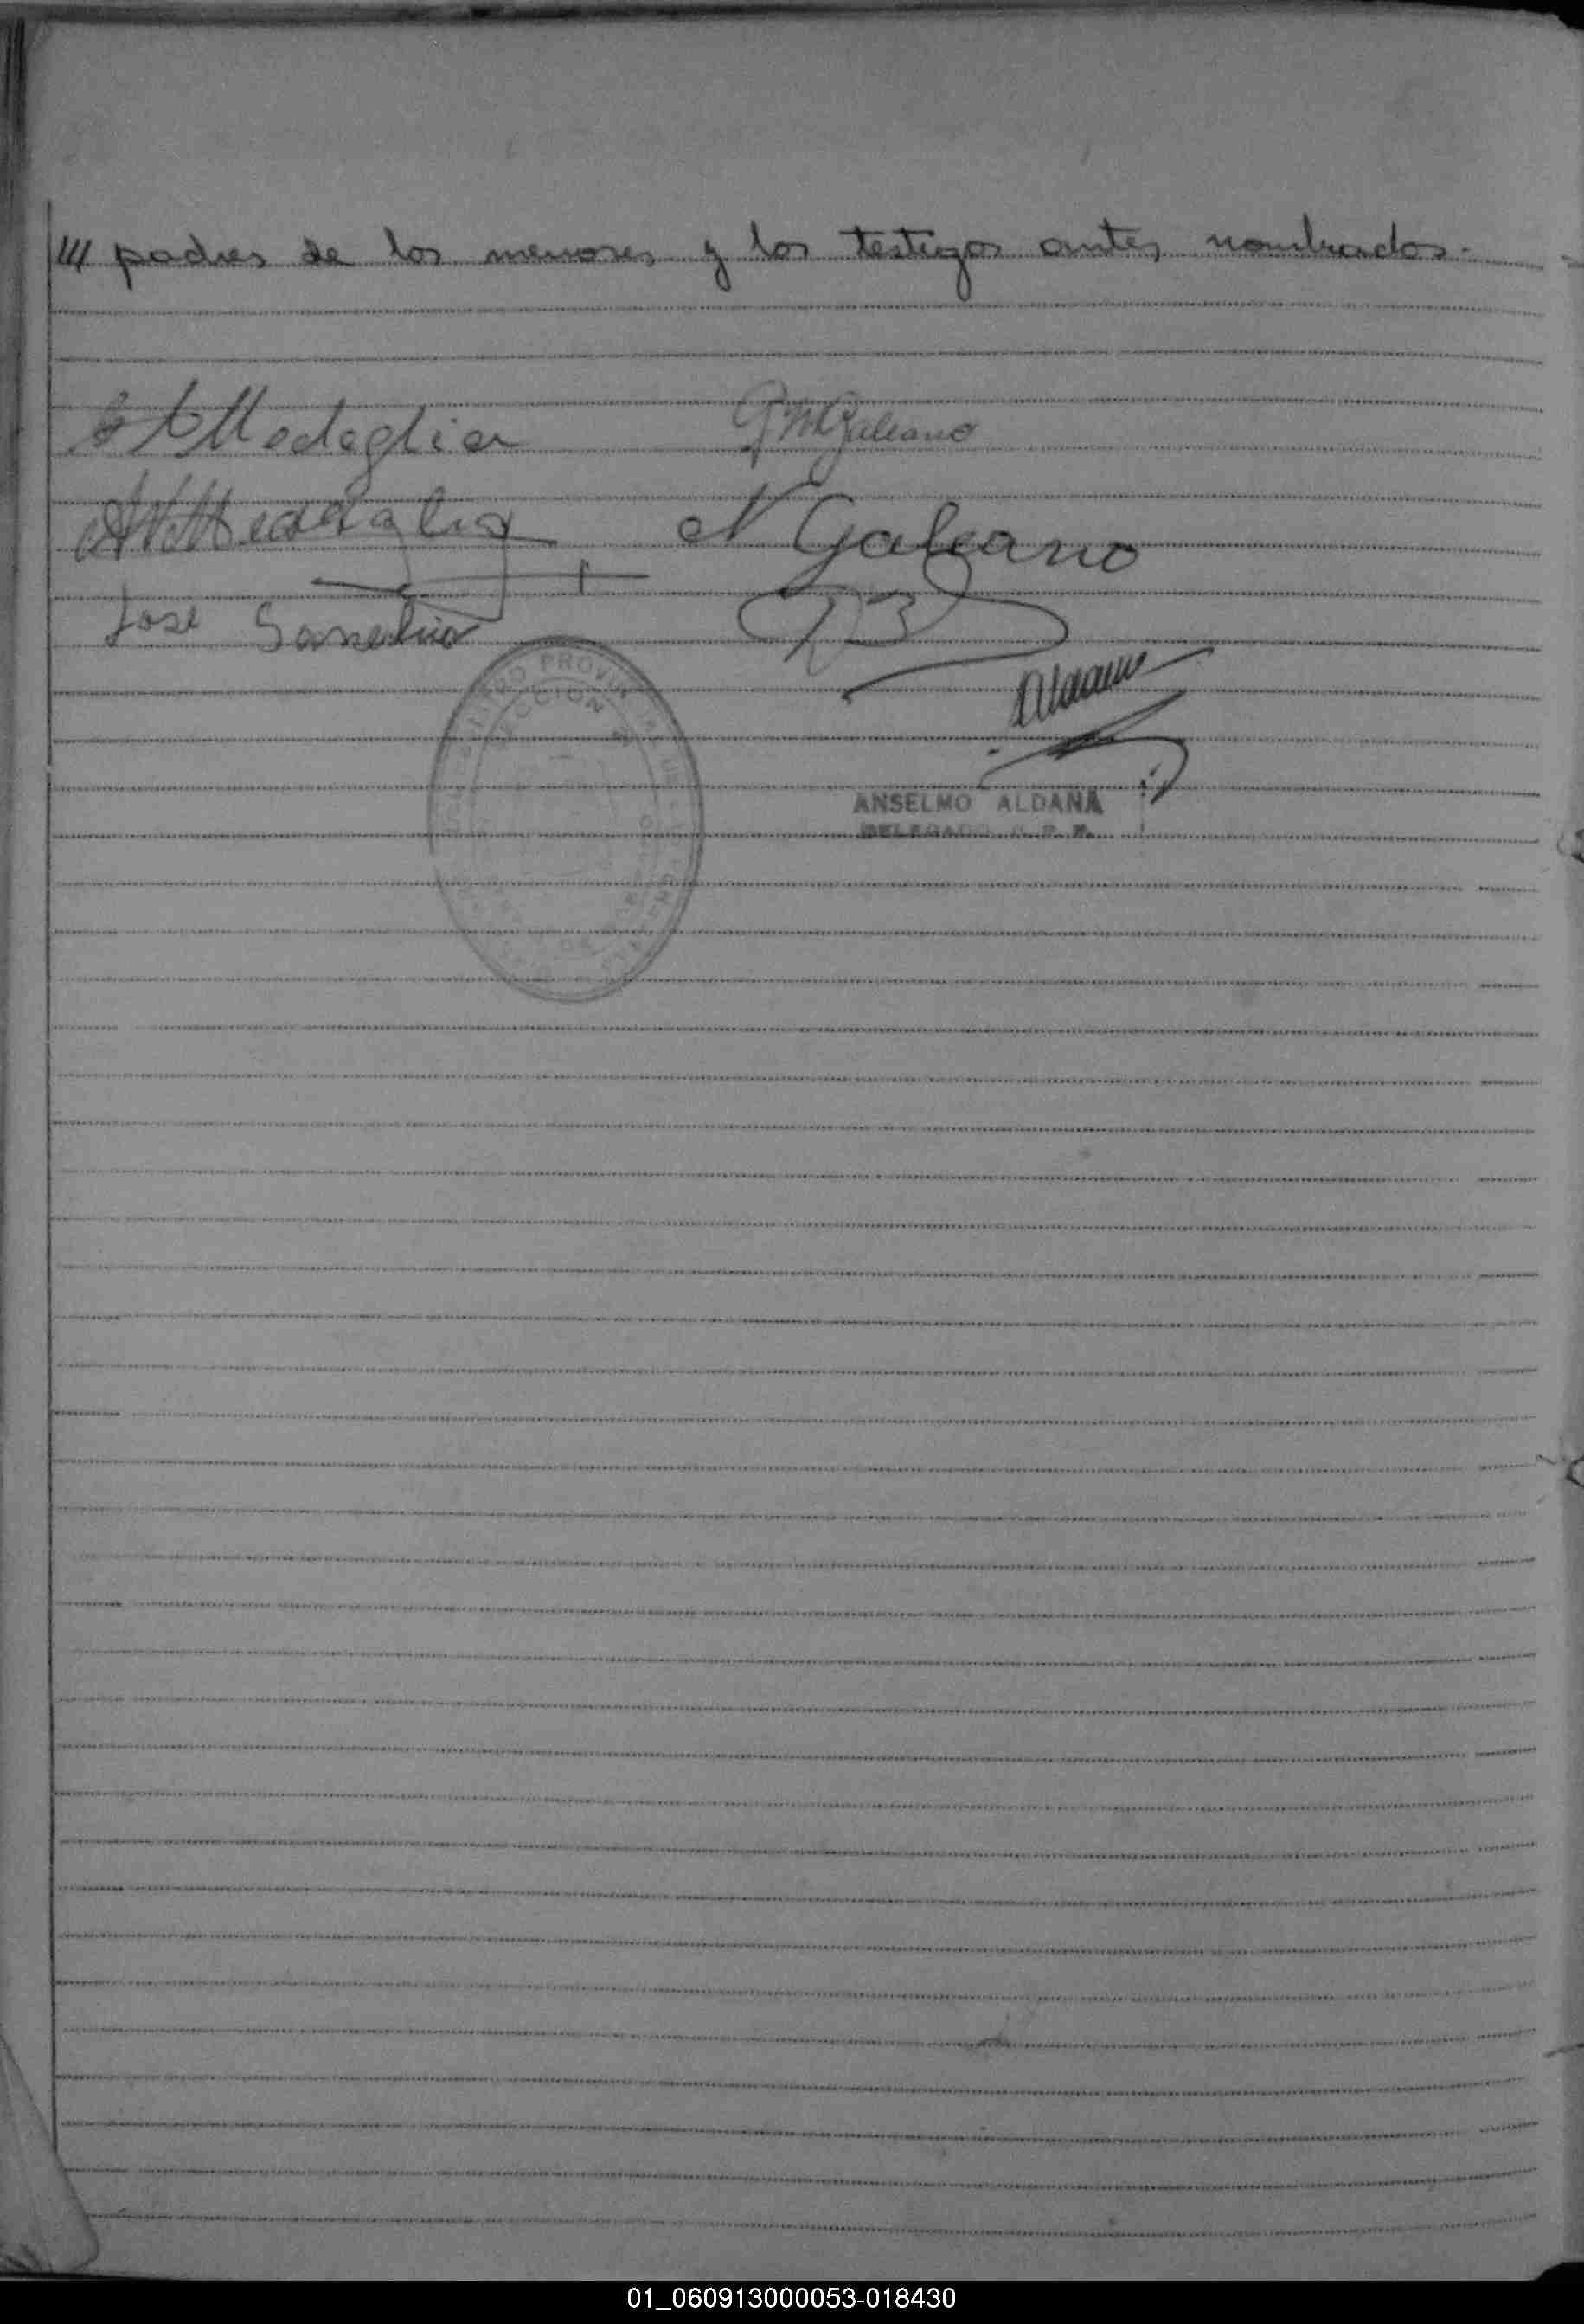 /// padres de los menores y los testigos antes nombrados.-
Medaglia
G M Galeano
Medaglia
N Galeano
Jose
Aldana
PROVIN
SECCION
ANSELMO ALDANA
DELEGADO R. P. P.
01_060913000053-018430